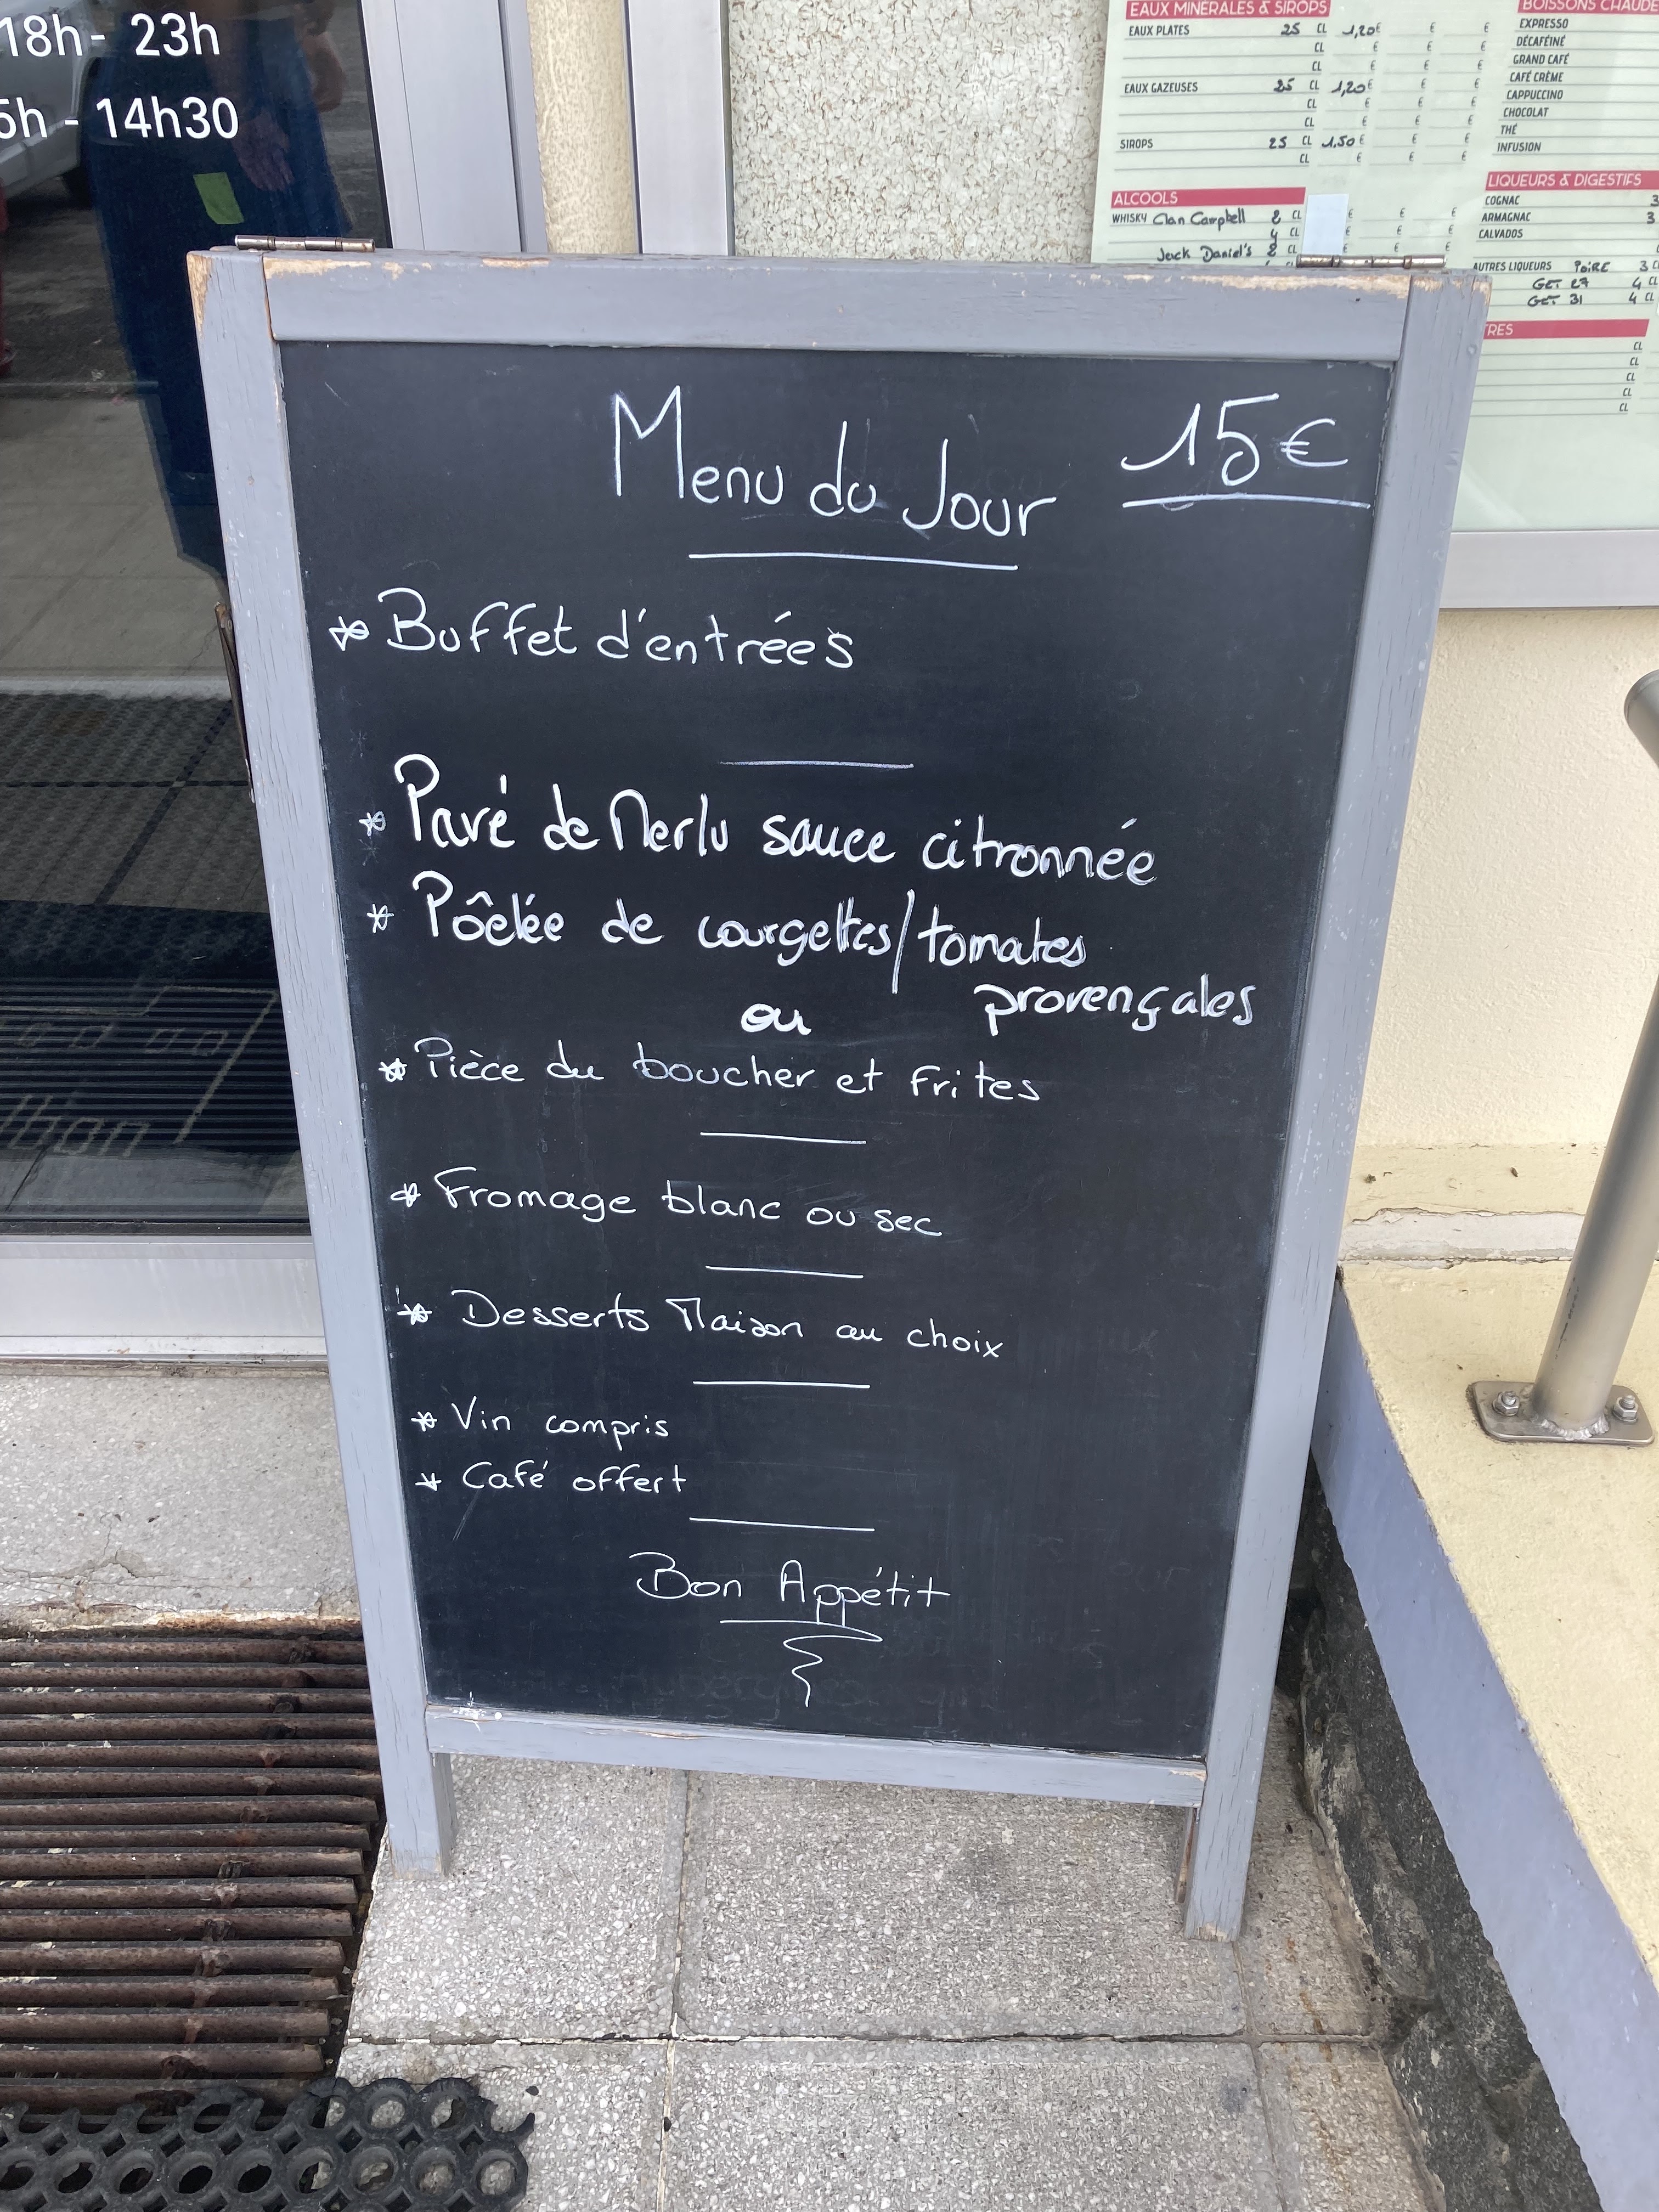 18h - 23h
5h - 14h30
EAUX MINÉRALES & SIROPS
EAUX PLATES 25 CL 1,20 € € €
CL € € €
CL € € €
EAUX GAZEUSES 25 CL 1,20 € € €
CL € € €
CL € € €
SIROPS 25 CL 1,50 € € €
CL € € €
ALCOOLS
WHISKY Clan Campbell 2 CL € € €
4 CL € € €
Jack Daniel's 2 CL € € €
BOISSONS CHAUDE
EXPRESSO
DÉCAFÉINÉ
GRAND CAFÉ
CAFÉ CRÈME
CAPPUCCINO
CHOCOLAT
THÉ
INFUSION
LIQUEURS & DIGESTIFS
COGNAC 3
ARMAGNAC 3
CALVADOS
AUTRES LIQUEURS POIRE 3 C
GET 27 4 CL
GET 31 4 CL
TRES
CL
CL
CL
CL
CL
Menu du Jour 15€
* Buffet d'entrées
* Pavé de Merlu sauce citronnée
* Pôêlée de courgettes/tomates
provençales
ou
* Pièce du boucher et frites
* Fromage blanc ou sec
* Desserts Maison au choix
* Vin compris
* Café offert
Bon Appétit